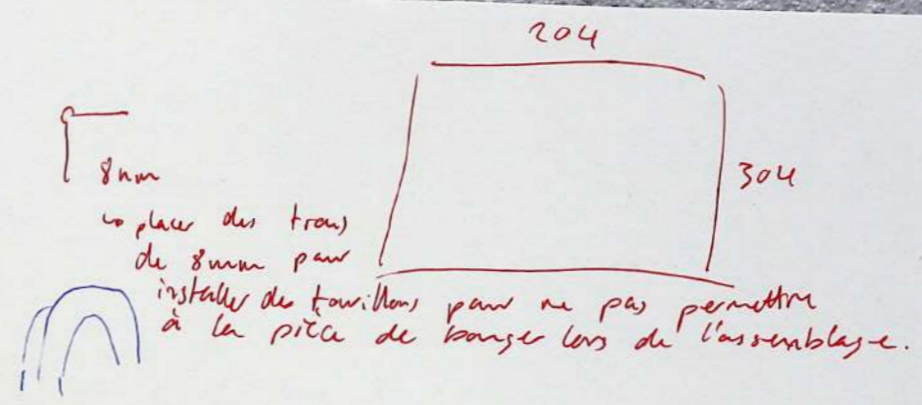 204
304
8mm
↳ placer des trous
de 8mm pour
installer des tourillons pour ne pas permettre
à la pièce de bouger lors de l'assemblage.